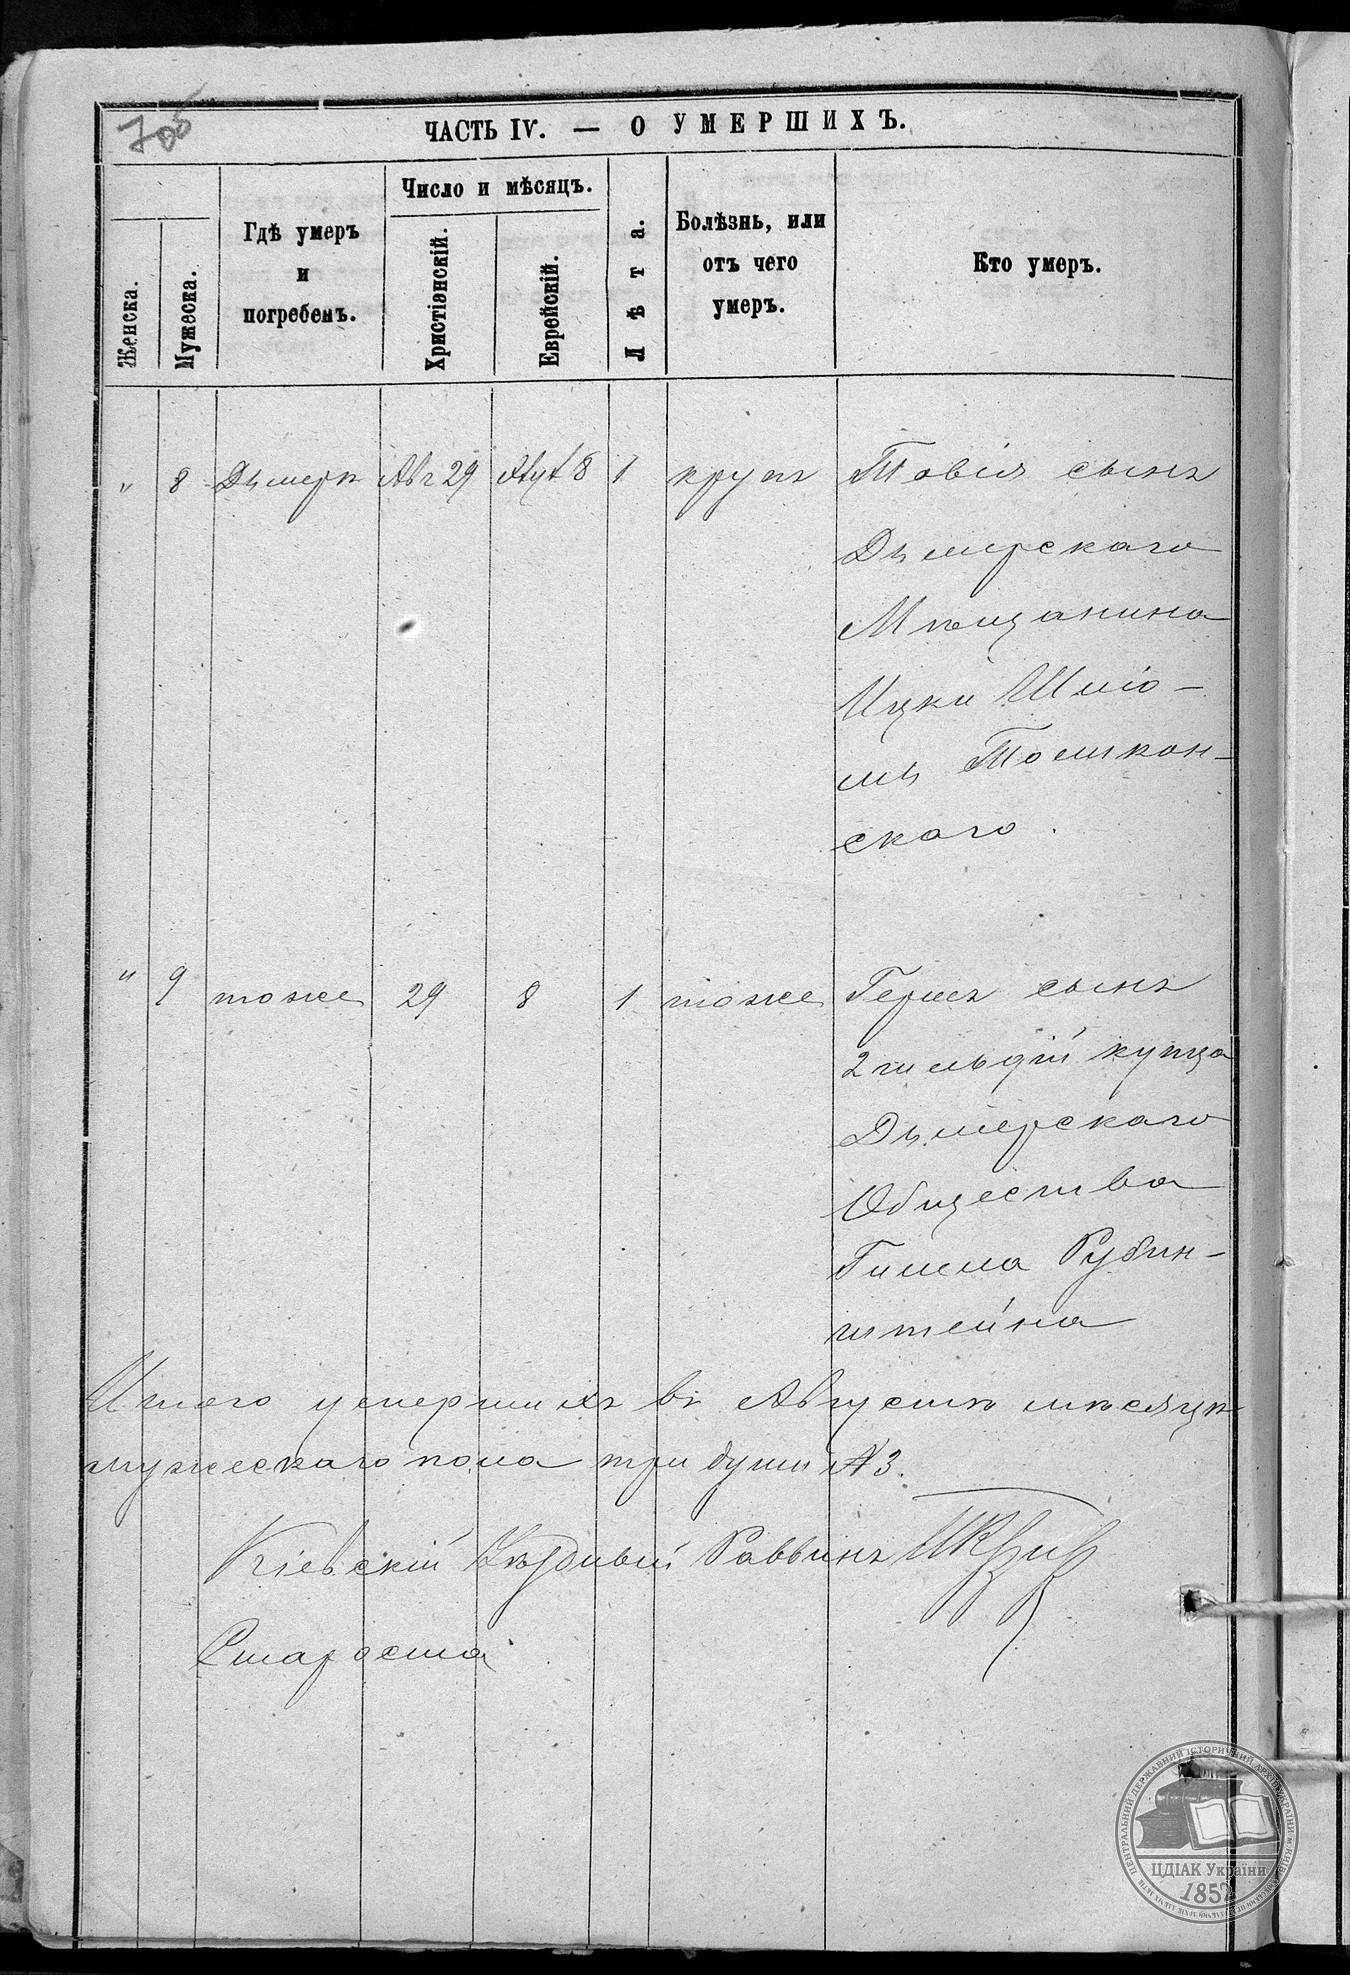 705
ЧАСТЬ IV. — О УМЕРШИХЪ.
Женска.
Мужеска.
Гдѣ умеръ
и
погребенъ.
Число и мѣсяцъ.
Христіанскій.
Еврейскій.
Лѣта.
Болѣзнь, или
отъ чего
умеръ.
Кто умеръ.
" 8 Дымеръ Авг 29 8 1 крупъ Товія сынъ
Дымерскаго
Мѣщанина
Ицки Шміо-
мъ
скаго.
" 9 тоже 29 8 1 тоже Гершъ сынъ
2 гильдій купца
Дымерскаго
Общества
Гилела Рубин-
штейна
Итого умершихъ въ Августѣ мѣсяцѣ
мужескаго пола три души № 3.
Кіевскій Уѣздный Раввинъ
Староста
ЦЕНТРАЛЬНИЙ ДЕРЖАВНИЙ ІСТОРИЧНИЙ АРХІВ УКРАЇНИ м. КИЇВ
ЦДІАК України
1852